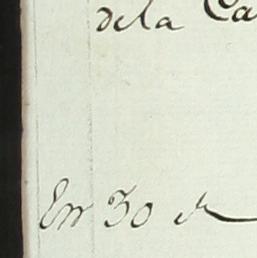 de la Ca
En 30 de